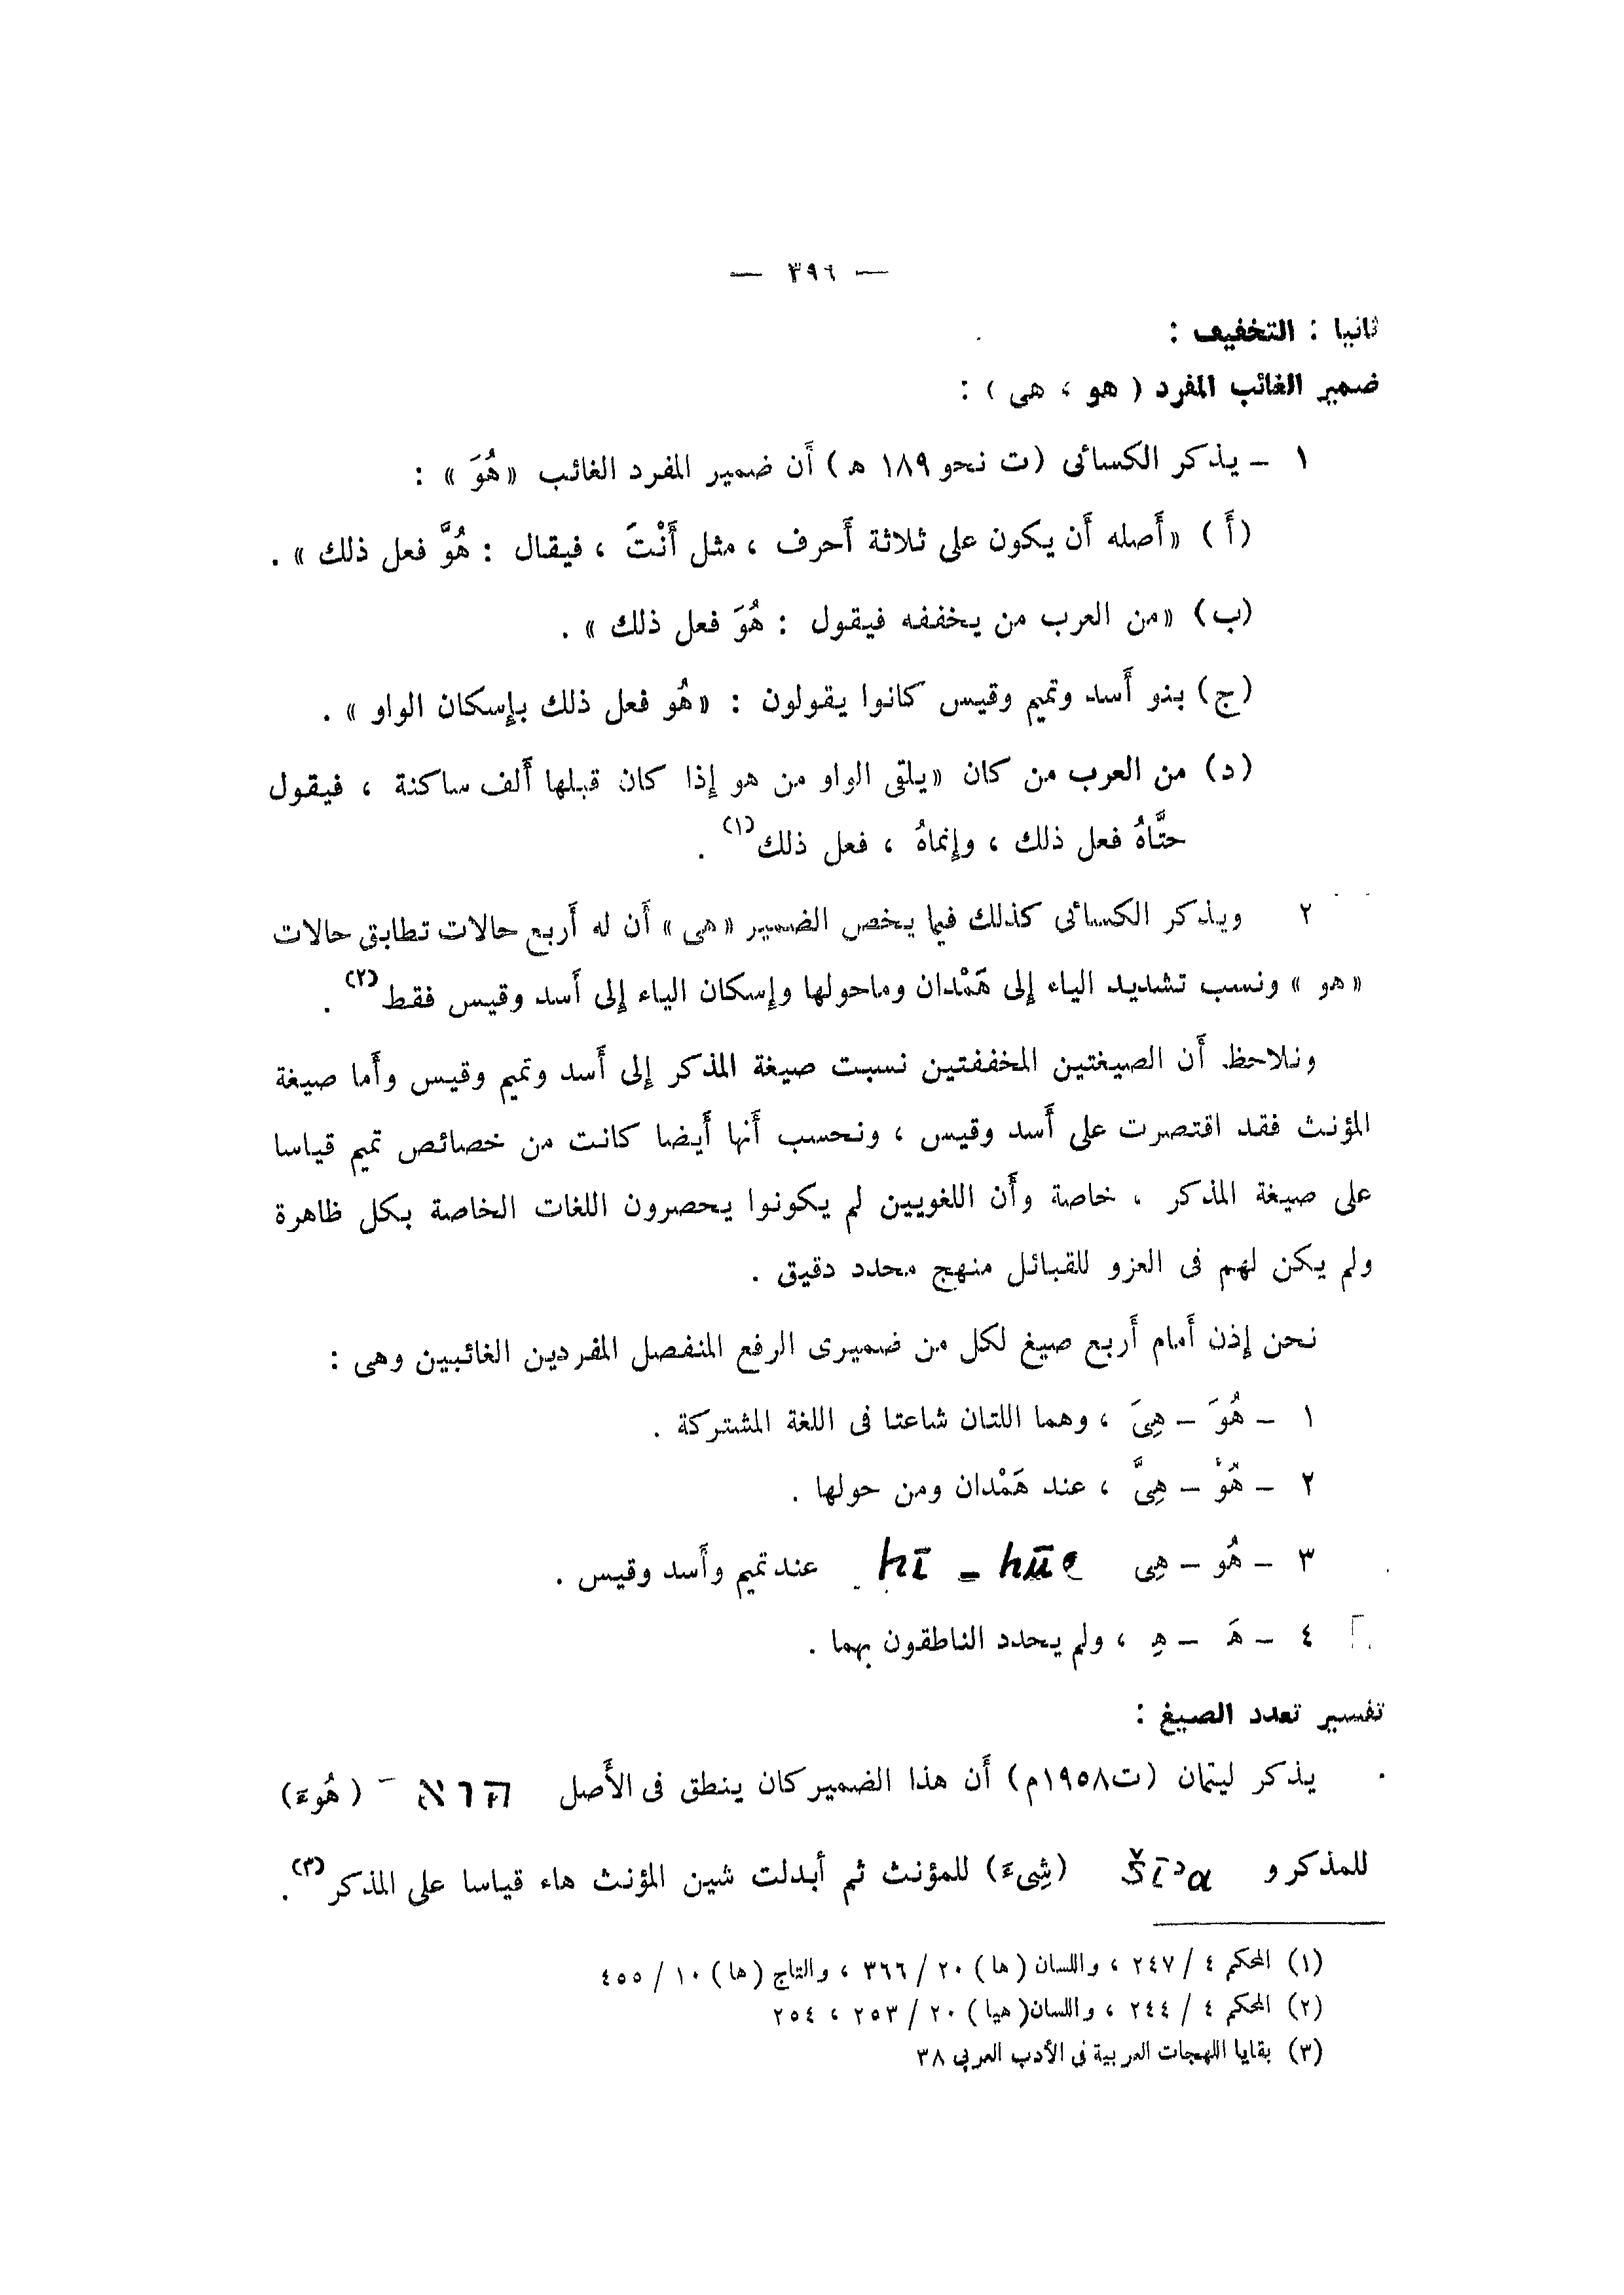 — ٣٩٦ —
ثانيا : التخفيف :
ضمير الغائب المفرد ( هو ، هى ) :
١ – يذكر الكسائى (ت نحو ١٨٩ ه) أَن ضمير المفرد الغائب « هُوَ » :
(أَ) «أَصله أَن يكون على ثلاثة أَحرف ، مثل أَنْتَ ، فيقال : هُوَّ فعل ذلك » .
(ب) «من العرب من يخففه فيقول : هُوَ فعل ذلك » .
(ج) بنو أَسد وتميم وقيس كانوا يقولون : « هُو فعل ذلك بإسكان الواو » .
(د) من العرب من كان «يلقى الواو من هو إذا كان قبلها أَلف ساكنة ، فيقول
حتَّاهُ فعل ذلك ، وإنماهُ ، فعل ذلك (١) .
٢ ويذكر الكسائى كذلك فيما يخص الضمير «هى» أَن له أَربع حالات تطابق حالات
«هو » ونسب تشديد الياء إلى هَمْدان وماحولها وإسكان الياء إلى أَسد وقيس فقط (٢) .
ونلاحظ أَن الصيغتين المخففتين نسبت صيغة المذكر إلى أَسد وتميم وقيس وأَما صيغة
المؤنث فقد اقتصرت على أَسد وقيس ، ونحسب أَنها أَيضا كانت من خصائص تميم قياسا
على صيغة المذكر ، خاصة وأَن اللغويين لم يكونوا يحصرون اللغات الخاصة بكل ظاهرة
ولم يكن لهم فى العزو للقبائل منهج محدد دقيق .
نحن إذن أَمام أَربع صيغ لكل من ضميرى الرفع المنفصل المفردين الغائبين وهى :
١ – هُوَ – هِىَ ، وهما اللتان شاعتا فى اللغة المشتركة .
٢ – هُوَّ – هِىَّ ، عند هَمْدان ومن حولها .
٣ – هُو – هِى hī – hū عند تميم وأَسد وقيس .
٤ – هَ – هِ ، ولم يحدد الناطقون بهما .
تفسير تعدد الصيغ :
يذكر ليتمان (ت١٩٥٨م) أَن هذا الضمير كان ينطق فى الأَصل הוא – ( هُوءَ)
للمذكر و šīʾa (شِىءَ) للمؤنث ثم أبدلت شين المؤنث هاء قياسا على المذكر (٣).
(١) المحكم ٤ / ٢٤٧ ، واللسان (ها) ٢٠ / ٣٦٦ ، والتاج (ها) ١٠ / ٤٥٥
(٢) المحكم ٤ / ٢٤٤ ، واللسان( هيا ) ٢٠ / ٢٥٣ ، ٢٥٤
(٣) بقايا اللهجات العربية فى الأدب العربى ٣٨